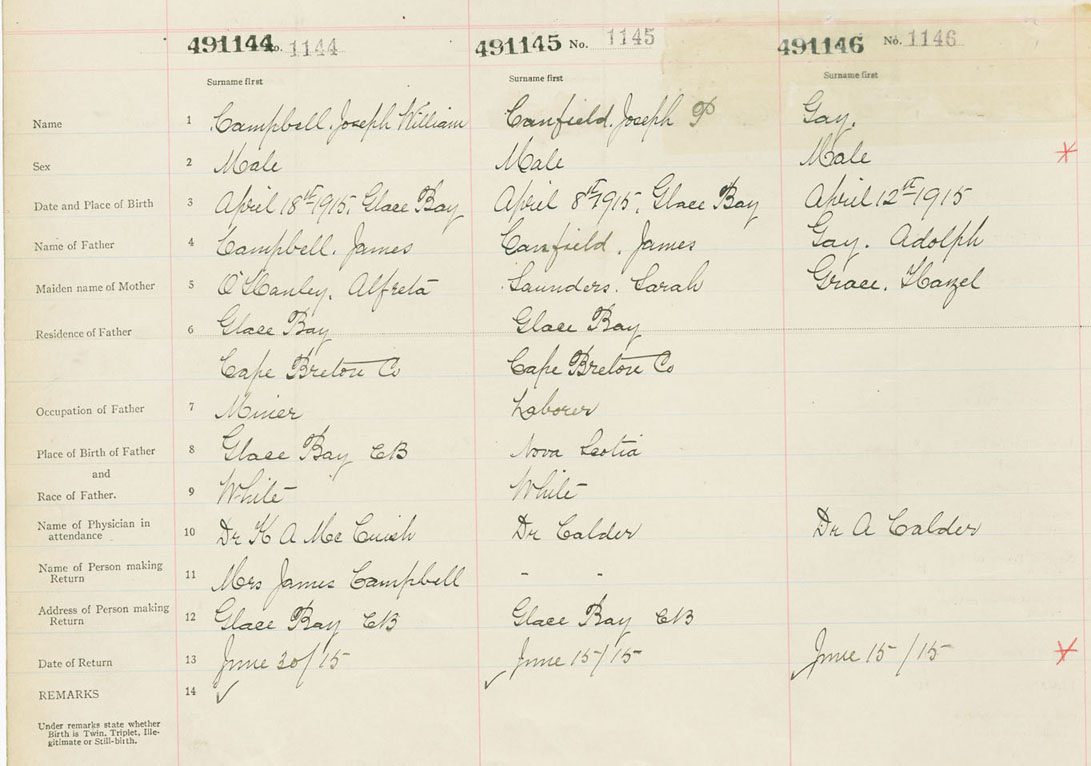 491144 No. 1144 491145 No. 1145 491146 No. 1146
Surname first Surname first Surname first
Name 1 Campbell. Joseph William Canfield. Joseph P Gay.
Sex 2 Male Male Male
Date and Place of Birth 3 April 18th 1915. Glace Bay April 8th 1915. Glace Bay April 12th 1915
Name of Father 4 Campbell. James Canfield. James Gay. Adolph
Maiden name of Mother 5 O'Hanley. Alfreta Saunders. Sarah Grace. Hazel
Residence of Father 6 Glace Bay Glace Bay
Cape Breton Co Cape Breton Co
Occupation of Father 7 Miner Laborer
Place of Birth of Father 8 Glace Bay CB Nova Scotia
and
Race of Father. 9 White White
Name of Physician in
attendance 10 Dr K A Mc Cuish Dr Calder Dr A Calder
Name of Person making
Return 11 Mrs James Campbell - -
Address of Person making
Return 12 Glace Bay CB Glace Bay CB
Date of Return 13 June 30/15 June 15/15 June 15/15
REMARKS 14 ✓
Under remarks state whether
Birth is Twin, Triplet, Ille-
gitimate or Still-birth.